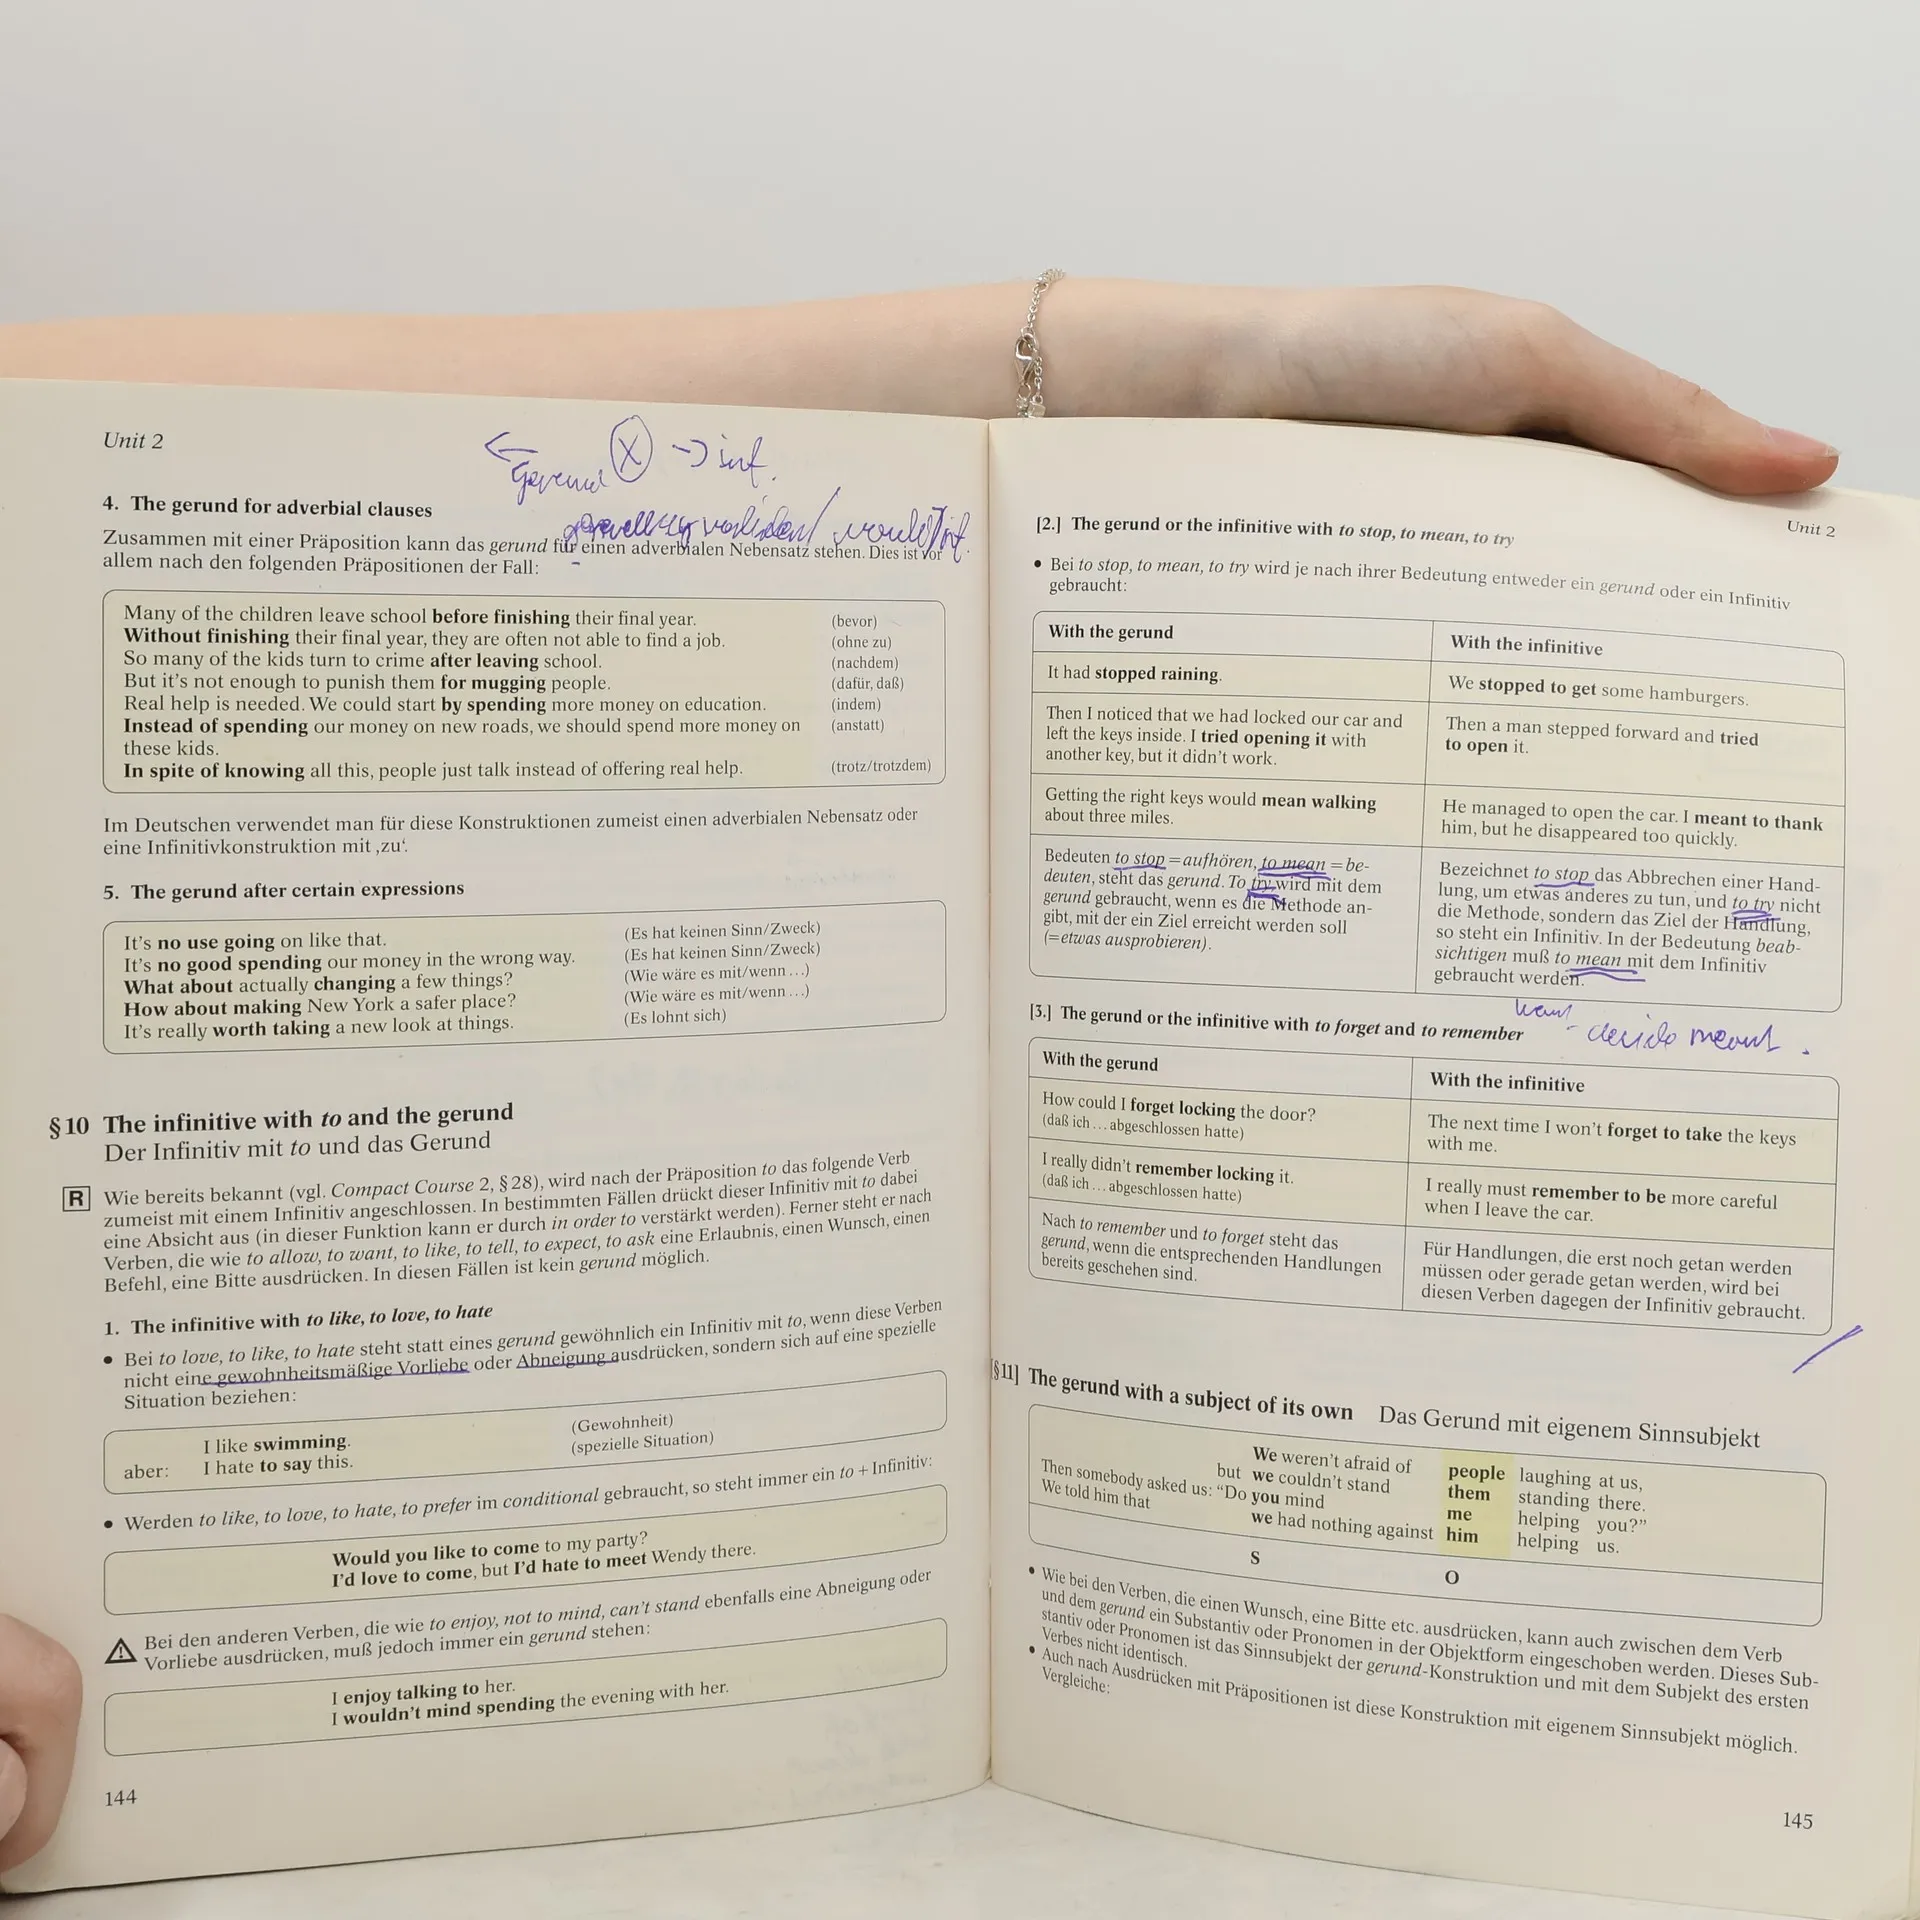 Unit 2
← gerund X → inf.
4. The gerund for adverbial clauses
Zusammen mit einer Präposition kann das gerund für einen adverbialen Nebensatz stehen. Dies ist vor
allem nach den folgenden Präpositionen der Fall:
Many of the children leave school before finishing their final year. (bevor)
Without finishing their final year, they are often not able to find a job. (ohne zu)
So many of the kids turn to crime after leaving school. (nachdem)
But it's not enough to punish them for mugging people. (dafür, daß)
Real help is needed. We could start by spending more money on education. (indem)
Instead of spending our money on new roads, we should spend more money on (anstatt)
these kids.
In spite of knowing all this, people just talk instead of offering real help. (trotz/trotzdem)
Im Deutschen verwendet man für diese Konstruktionen zumeist einen adverbialen Nebensatz oder
eine Infinitivkonstruktion mit ‚zu'.
5. The gerund after certain expressions
It's no use going on like that. (Es hat keinen Sinn/Zweck)
It's no good spending our money in the wrong way. (Es hat keinen Sinn/Zweck)
What about actually changing a few things? (Wie wäre es mit/wenn ...)
How about making New York a safer place? (Wie wäre es mit/wenn ...)
It's really worth taking a new look at things. (Es lohnt sich)
§ 10 The infinitive with to and the gerund
Der Infinitiv mit to und das Gerund
R Wie bereits bekannt (vgl. Compact Course 2, § 28), wird nach der Präposition to das folgende Verb
zumeist mit einem Infinitiv angeschlossen. In bestimmten Fällen drückt dieser Infinitiv mit to dabei
eine Absicht aus (in dieser Funktion kann er durch in order to verstärkt werden). Ferner steht er nach
Verben, die wie to allow, to want, to like, to tell, to expect, to ask eine Erlaubnis, einen Wunsch, einen
Befehl, eine Bitte ausdrücken. In diesen Fällen ist kein gerund möglich.
1. The infinitive with to like, to love, to hate
• Bei to love, to like, to hate steht statt eines gerund gewöhnlich ein Infinitiv mit to, wenn diese Verben
nicht eine gewohnheitsmäßige Vorliebe oder Abneigung ausdrücken, sondern sich auf eine spezielle
Situation beziehen:
I like swimming. (Gewohnheit)
aber: I hate to say this. (spezielle Situation)
• Werden to like, to love, to hate, to prefer im conditional gebraucht, so steht immer ein to + Infinitiv:
Would you like to come to my party?
I'd love to come, but I'd hate to meet Wendy there.
Bei den anderen Verben, die wie to enjoy, not to mind, can't stand ebenfalls eine Abneigung oder
Vorliebe ausdrücken, muß jedoch immer ein gerund stehen:
I enjoy talking to her.
I wouldn't mind spending the evening with her.
144
Unit 2
[2.] The gerund or the infinitive with to stop, to mean, to try
• Bei to stop, to mean, to try wird je nach ihrer Bedeutung entweder ein gerund oder ein Infinitiv
gebraucht:
With the gerund
With the infinitive
It had stopped raining.
We stopped to get some hamburgers.
Then I noticed that we had locked our car and
left the keys inside. I tried opening it with
another key, but it didn't work.
Then a man stepped forward and tried
to open it.
Getting the right keys would mean walking
about three miles.
He managed to open the car. I meant to thank
him, but he disappeared too quickly.
Bedeuten to stop = aufhören, to mean = be-
deuten, steht das gerund. To try wird mit dem
gerund gebraucht, wenn es die Methode an-
gibt, mit der ein Ziel erreicht werden soll
(= etwas ausprobieren).
Bezeichnet to stop das Abbrechen einer Hand-
lung, um etwas anderes zu tun, und to try nicht
die Methode, sondern das Ziel der Handlung,
so steht ein Infinitiv. In der Bedeutung beab-
sichtigen muß to mean mit dem Infinitiv
gebraucht werden.
[3.] The gerund or the infinitive with to forget and to remember
With the gerund
With the infinitive
How could I forget locking the door?
(daß ich ... abgeschlossen hatte)
The next time I won't forget to take the keys
with me.
I really didn't remember locking it.
(daß ich ... abgeschlossen hatte)
I really must remember to be more careful
when I leave the car.
Nach to remember und to forget steht das
gerund, wenn die entsprechenden Handlungen
bereits geschehen sind.
Für Handlungen, die erst noch getan werden
müssen oder gerade getan werden, wird bei
diesen Verben dagegen der Infinitiv gebraucht.
[§11] The gerund with a subject of its own Das Gerund mit eigenem Sinnsubjekt
We weren't afraid of people laughing at us,
but we couldn't stand them standing there.
Then somebody asked us: "Do you mind me helping you?"
We told him that we had nothing against him helping us.
S O
• Wie bei den Verben, die einen Wunsch, eine Bitte etc. ausdrücken, kann auch zwischen dem Verb
und dem gerund ein Substantiv oder Pronomen in der Objektform eingeschoben werden. Dieses Sub-
stantiv oder Pronomen ist das Sinnsubjekt der gerund-Konstruktion und mit dem Subjekt des ersten
Verbes nicht identisch.
• Auch nach Ausdrücken mit Präpositionen ist diese Konstruktion mit eigenem Sinnsubjekt möglich.
Vergleiche:
145